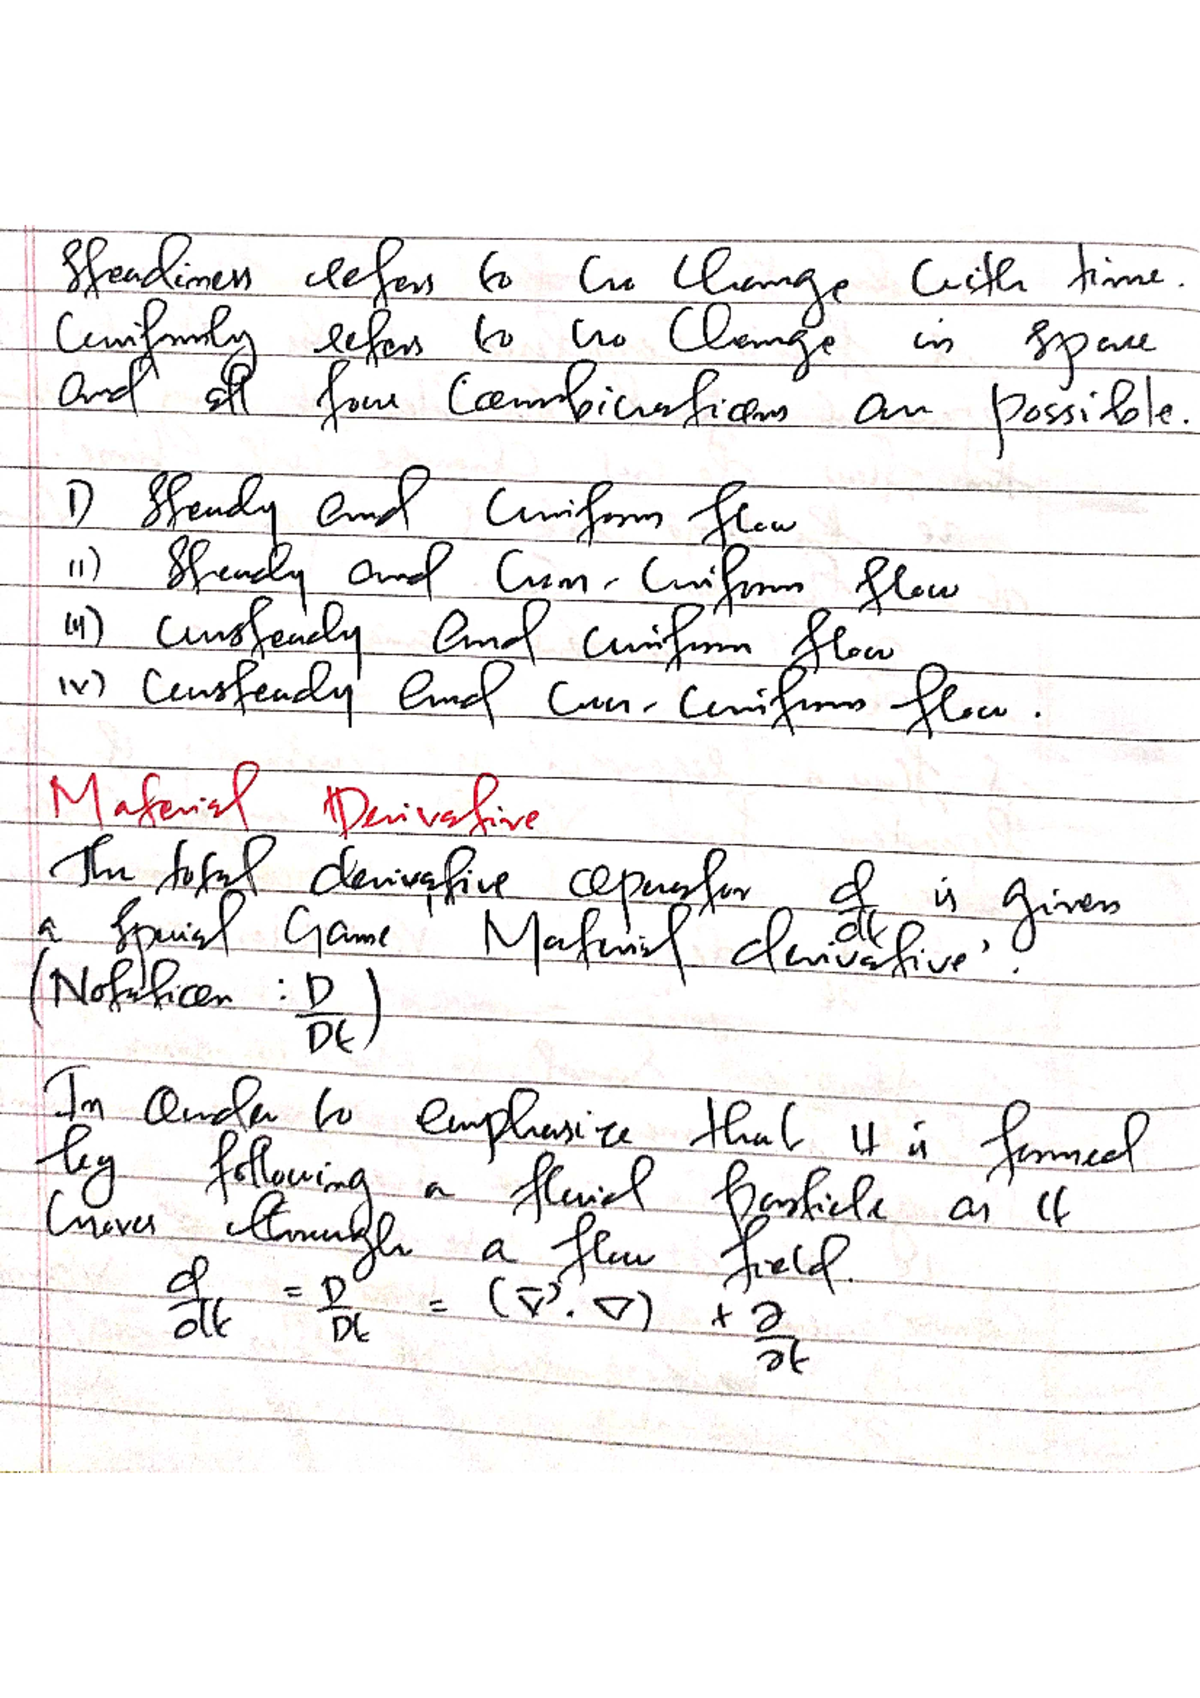 Steadiness refers to no change with time.
Uniformly refers to no change in space
and all four combinations are possible.
I) Steady and uniform flow
II) Steady and non-uniform flow
III) unsteady and uniform flow
IV) unsteady and non-uniform flow.
Material Derivative
The total derivative operator d/dt is given
a special name 'Material derivative'.
(Notation : D/Dt)
In order to emphasize that it is formed
by following a fluid particle as it
moves through a flow field.
d/dt = D/Dt = (V⃗ . ∇) + ∂/∂t